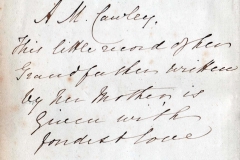 A M. Cawley.
This little record of her
Grandfather written
by her Mother, is
given with
fondest love